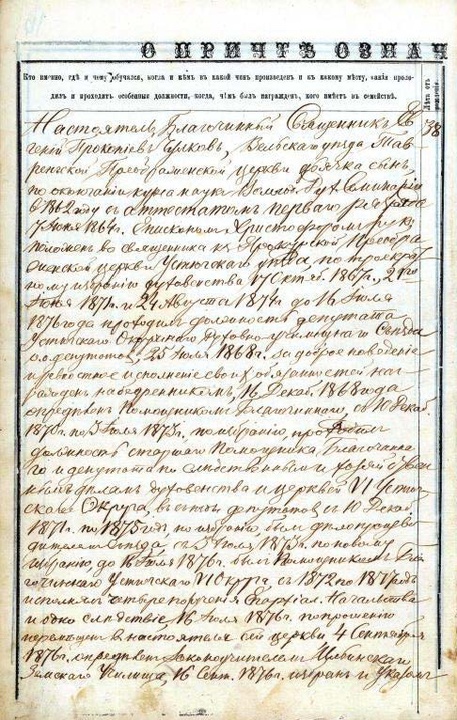 О ПРИЧТѢ ОЗНАЧ
Кто именно, гдѣ и чему обучался, когда и кѣмъ въ какой чинъ произведенъ и къ какому мѣсту, какія прохо-
дилъ и проходитъ особенныя должности, когда, чѣмъ былъ награжденъ, кого имѣетъ въ семействѣ.
Лѣта отъ рожденія.
Настоятель, Благочинный Священникъ Ев
38
геній Прокопіевъ Бурковъ, Вельскаго уѣзда Тав-
реньгской Преображенской церкви дьячка сынъ,
по окончаніи курса наукъ Волог. Дух. Семинаріи
въ 1862 году съ аттестатомъ перваго разряда
7 Іюня 1864 г. Епископомъ Христофоромъ руко
положенъ во священника къ Преобра
женской церкви Устюгскаго уѣзда, по троекрат
ному избранію духовенства 17 Октяб. 1867 г., 21го
Іюня 1871 г. и 24 Августа 1874 г. до 16 Іюля
1876 года проходилъ должность депутата
Устюжскаго Окружнаго Духовно-училищнаго Съѣзда
25 Іюля 1868 г. за доброе поведеніе
и ревностное исполненіе своихъ обязанностей наг-
ражденъ набедренникомъ, 16 Декаб. 1868 года
опредѣленъ Помощникомъ Благочиннаго, съ 10 Декаб.
1870 г. по 5 Іюля 1873 г. по избранію, проходилъ
должность старшаго Помощника Благочинна
го и депутата по слѣдственнымъ и
дѣламъ духовенства и церквей VI Устюж
скаго Округа, депутатовъ съ 10 Декаб.
1871 г. по 1875 годъ, по избранію, былъ дѣлопроизво
дителемъ Съѣзда, съ 5 Іюля 1873 г. по новому
избранію, до 16 Іюля 1876 г. былъ Помощникомъ Бла
гочиннаго Устюжскаго VI Округа, съ 1872 по 1877 годъ
исполнялъ четыре порученія Епархіал. Начальства
и одно слѣдствіе, 16 Іюля 1876 г. по прошенію
перемѣщенъ въ настоятели сей церкви, 4 Сентября
1876 г. опредѣленъ Законоучителемъ
Земскаго Училища, 16 Сент. 1876 г. избранъ и Указомъ